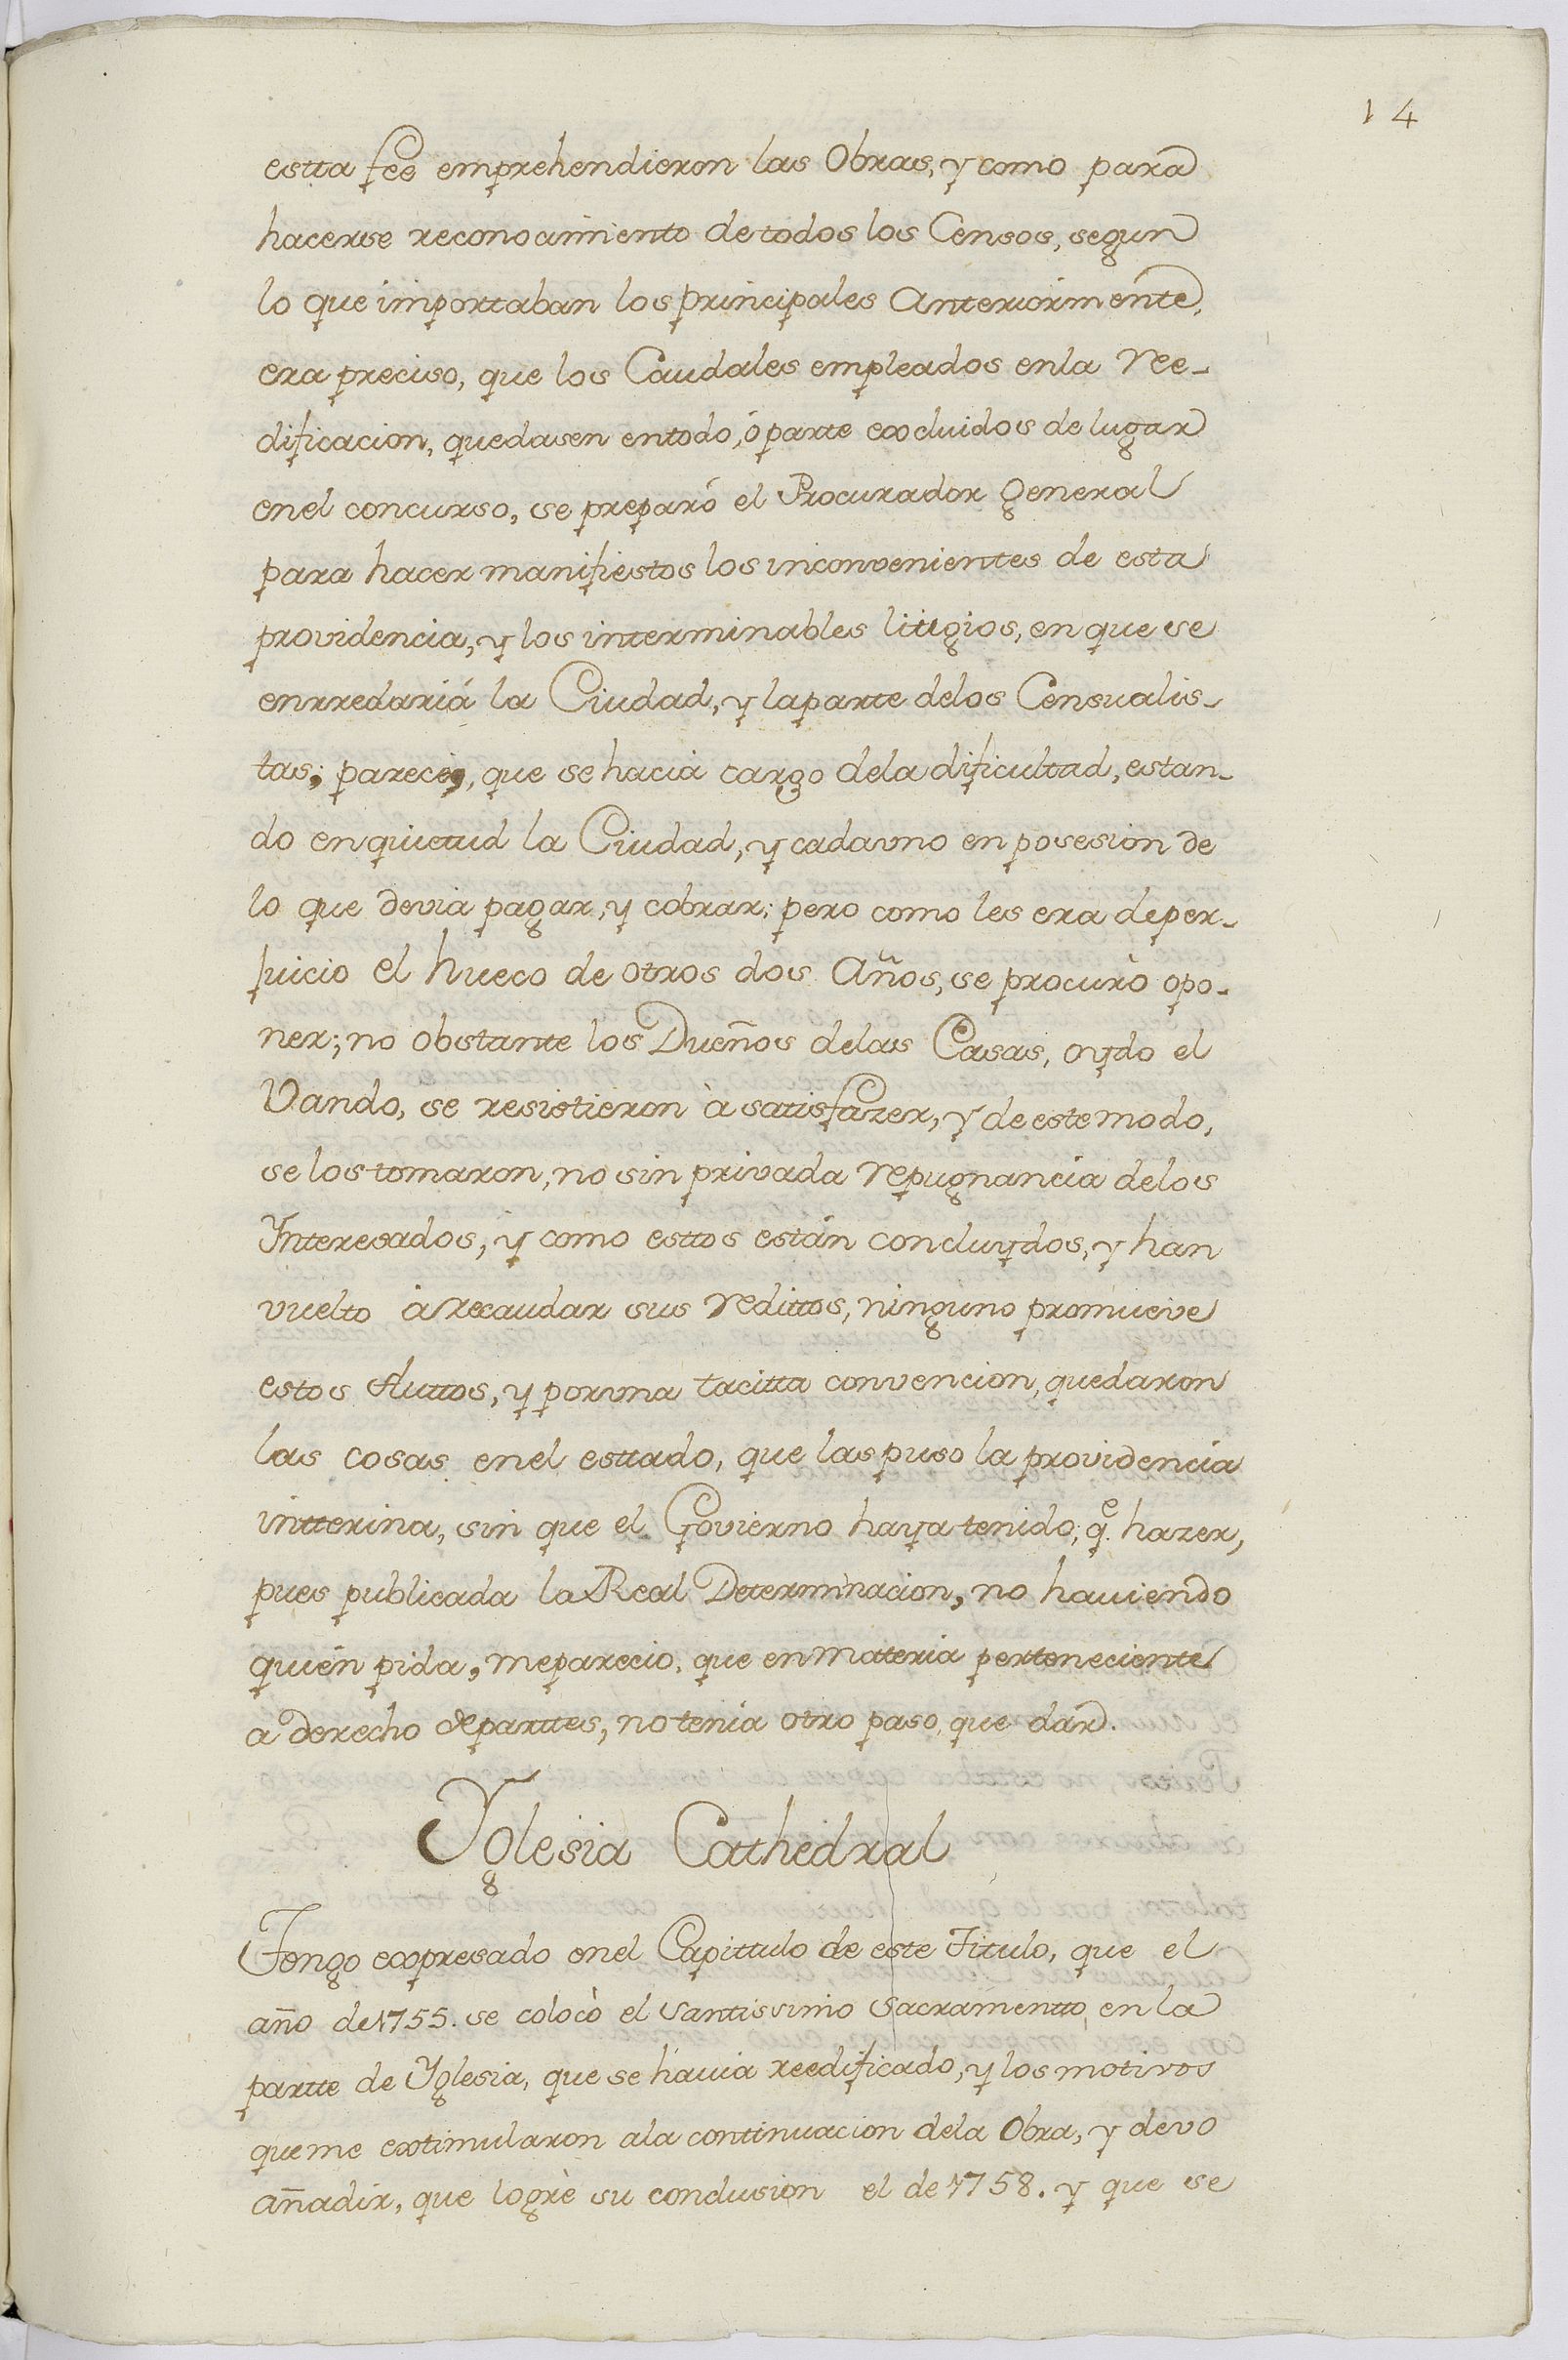 14
estta fee emprehendieron las Obras, y como para
hacerse reconocimiento de todos los Censos, segun
lo que importaban los principales anteriormente,
era preciso, que los Caudales empleados enla ree-
dificacion, quedasen entodo, ó parte excluidos de lugar
enel concurso, se preparó el Procurador General
para hacer manifiestos los inconvenientes de esta
providencia, y los interminables litigios, en que se
enrredariá la Ciudad, y laparte delos Censualis-
tas; parecio, que se hacia cargo dela dificultad, estan-
do enquietud la Ciudad, y cadauno en posesion de
lo que devia pagar, y cobrar; pero como les era deper-
juicio el hueco de otros dos Años, se procurò opo-
ner; no obstante los Dueños delas Casas, oydo el
Vando, se resistieron à satisfazer, y de este modo,
se los tomaron, no sin privada repugnancia delos
Ynteresados, y como esttos están concluydos, y han
vuelto à recaudar sus redittos, ninguno promueve
estos Auttos, y poruna tacitta convencion, quedaron
las cosas enel esttado, que las puso la providencia
intterina, sin que el Govierno haya tenido; q.e hazer,
pues publicada la Real Determinacion, no haviendo
quién pida, meparecio, que en materia perteneciente
a derecho departtes, no tenia otro paso, que dar.
Yglesia Cathedral
Tengo expresado enel Capittulo de este Titulo, que el
año de 1755. se colocò el Santissimo Sacramentto, en la
partte de Yglesia, que se havia reedificado, y los motivos
queme extimularon ala continuacion dela Obra, y devo
añadir, que logrè su conclusion el de 1758. y que se